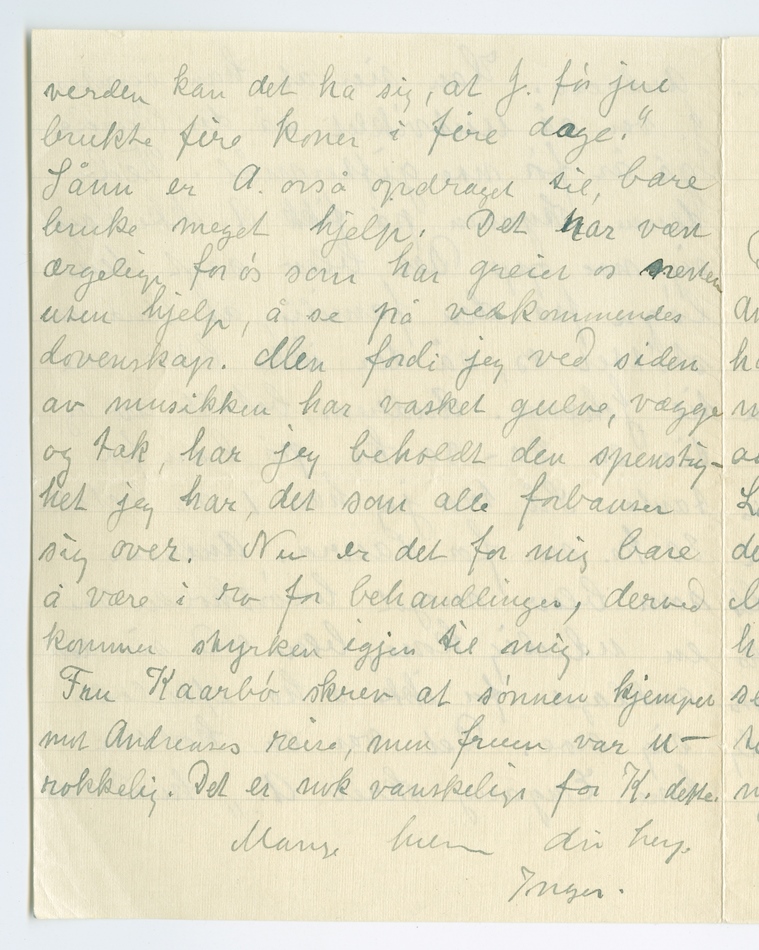 verden kan det ha sig, at J. før jul
brukte fire koner i fire dage."
Sånn er A. også opdraget til, bare
bruke meget hjelp. Det har vært
ærgelig for ós som har greiet os nesten
uten hjelp, å se på vedkommendes
dovenskap. Men fordi jeg ved siden
av musikken har vasket gulve, vægge
og tak, har jeg beholdt den spenstig-
het jeg har, det som alle forbauser
sig over. Nu er det for mig bare
å være i ro for behandlingen, derved
kommer styrken igjen til mig.
Fru Kaarbó skrev at sønnen kjempet
mot Andreases reise, men fruen var u-
rokkelig. Det er nok vanskelig for K. dette.
Mange
Inger.
an
ha
de
h
se